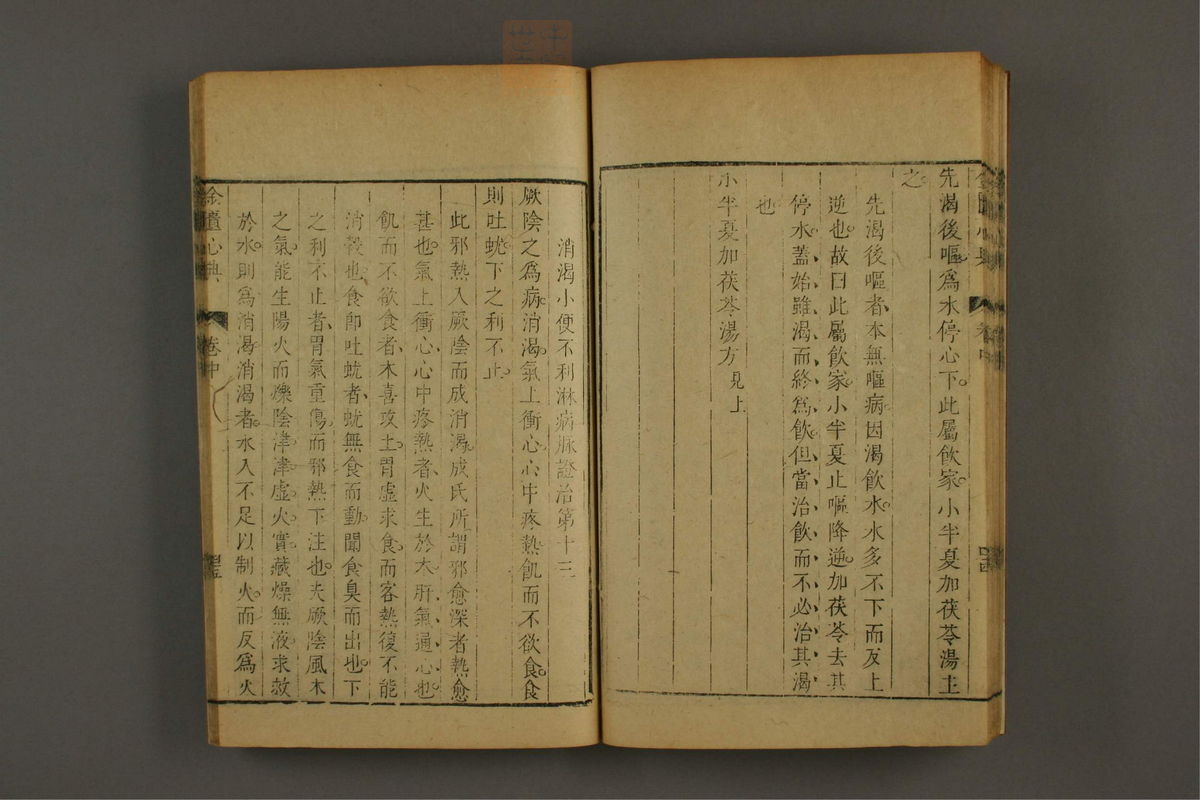 金匱心典
卷中
四十四
先渴後嘔爲水停心下此屬飲家小半夏加茯苓湯主
之
先渴後嘔者本無嘔病因渴飲水水多不下而反上
逆也故曰此屬飲家小半夏止嘔降逆加茯苓去其
停水蓋始雖渴而終爲飲但當治飲而不必治其渴
也
小半夏加茯苓湯方見上
消渴小便不利淋病脉證治第十三
厥陰之爲病消渴氣上衝心心中疼熱飢而不欲食食
則吐蚘下之利不止
此邪熱入厥陰而成消渴成氏所謂邪愈深者熱愈
甚也氣上衝心心中疼熱者火生於木肝氣通心也
飢而不欲食者木喜攻土胃虛求食而客熱復不能
消穀也食卽吐蚘者蚘無食而動聞食臭而出也下
之利不止者胃氣重傷而邪熱下注也夫厥陰風木
之氣能生陽火而爍陰津津虛火實藏燥無液求救
於水則爲消渴消渴者水入不足以制火而反爲火
金匱心典
卷中
四十五